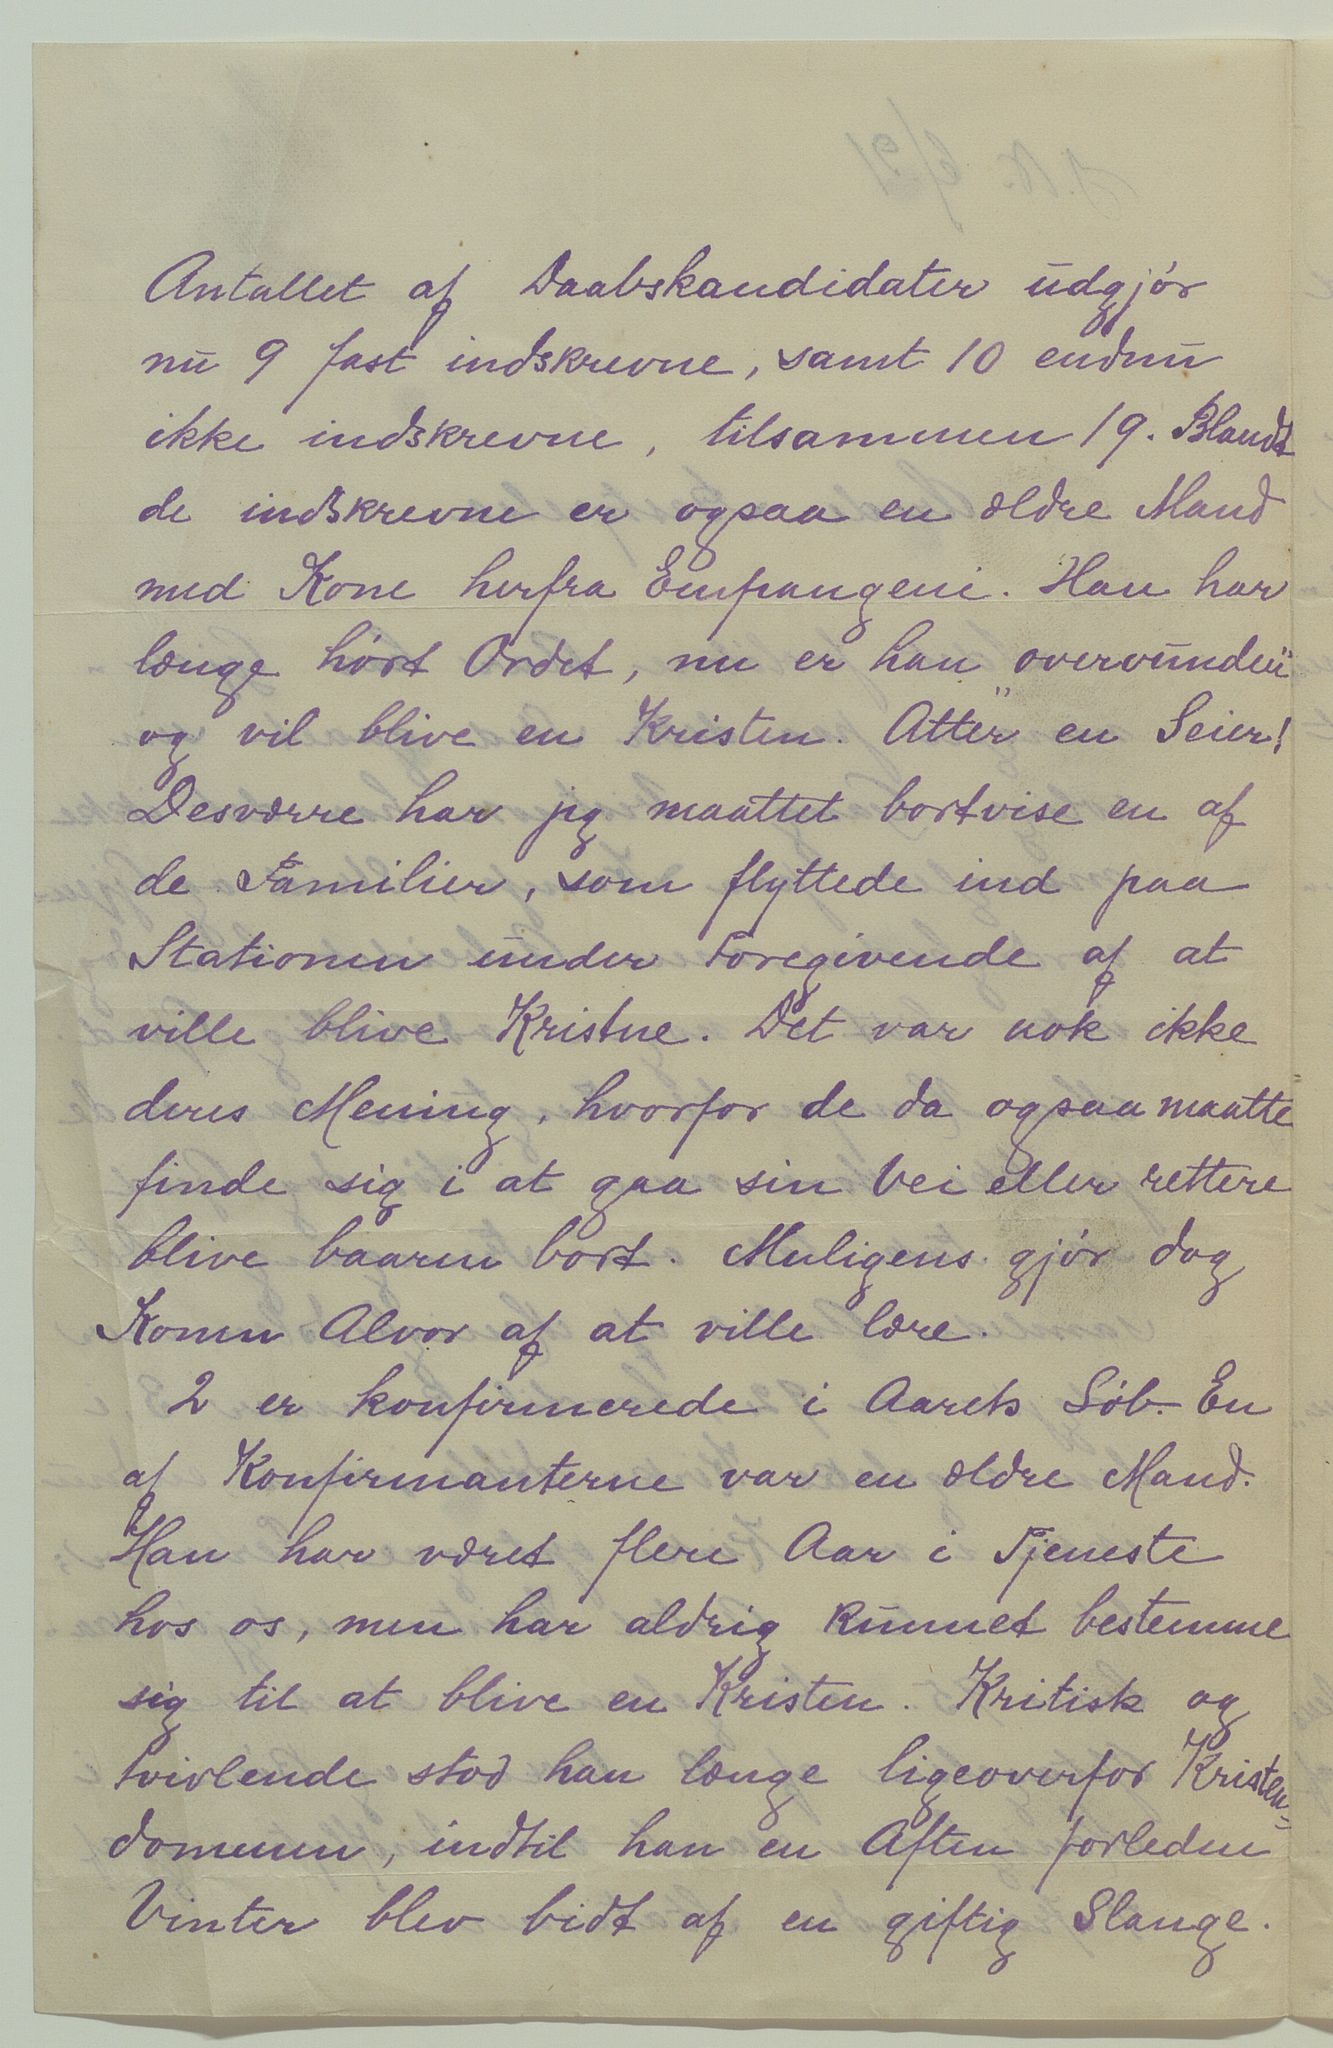 Antallet af Daabskandidater udgjør
nu 9 fast indskrevne, samt 10 endnu
ikke indskrevne, tilsammen 19. Blandt
de indskrevne er ogsaa en ældre Mand
med Kone herfra Empangeni. Han har
længe hørt Ordet, nu er han "overvunden"
og vil blive en Kristen. Atter en Seier!
Desværre har jeg maattet bortvise en af
de Familier, som flyttede ind paa
Stationen under Foregivende af at
ville blive Kristne. Det var nok ikke
deres Mening, hvorfor de da ogsaa maatte
finde sig i at gaa sin Vei eller rettere
blive baaren bort. Muligens gjør dog
Konen Alvor af at ville lære.
2 er konfirmerede i Aarets Løb. En
af Konfirmanterne var en ældre Mand.
Han har været flere Aar i Tjeneste
hos os, men har aldrig kunnet bestemme
sig til at blive en Kristen. Kritisk og
tvivlende stod han længe ligeoverfor Kristen-
dommen, indtil han en Aften forleden
Vinter blev bidt af en giftig Slange.